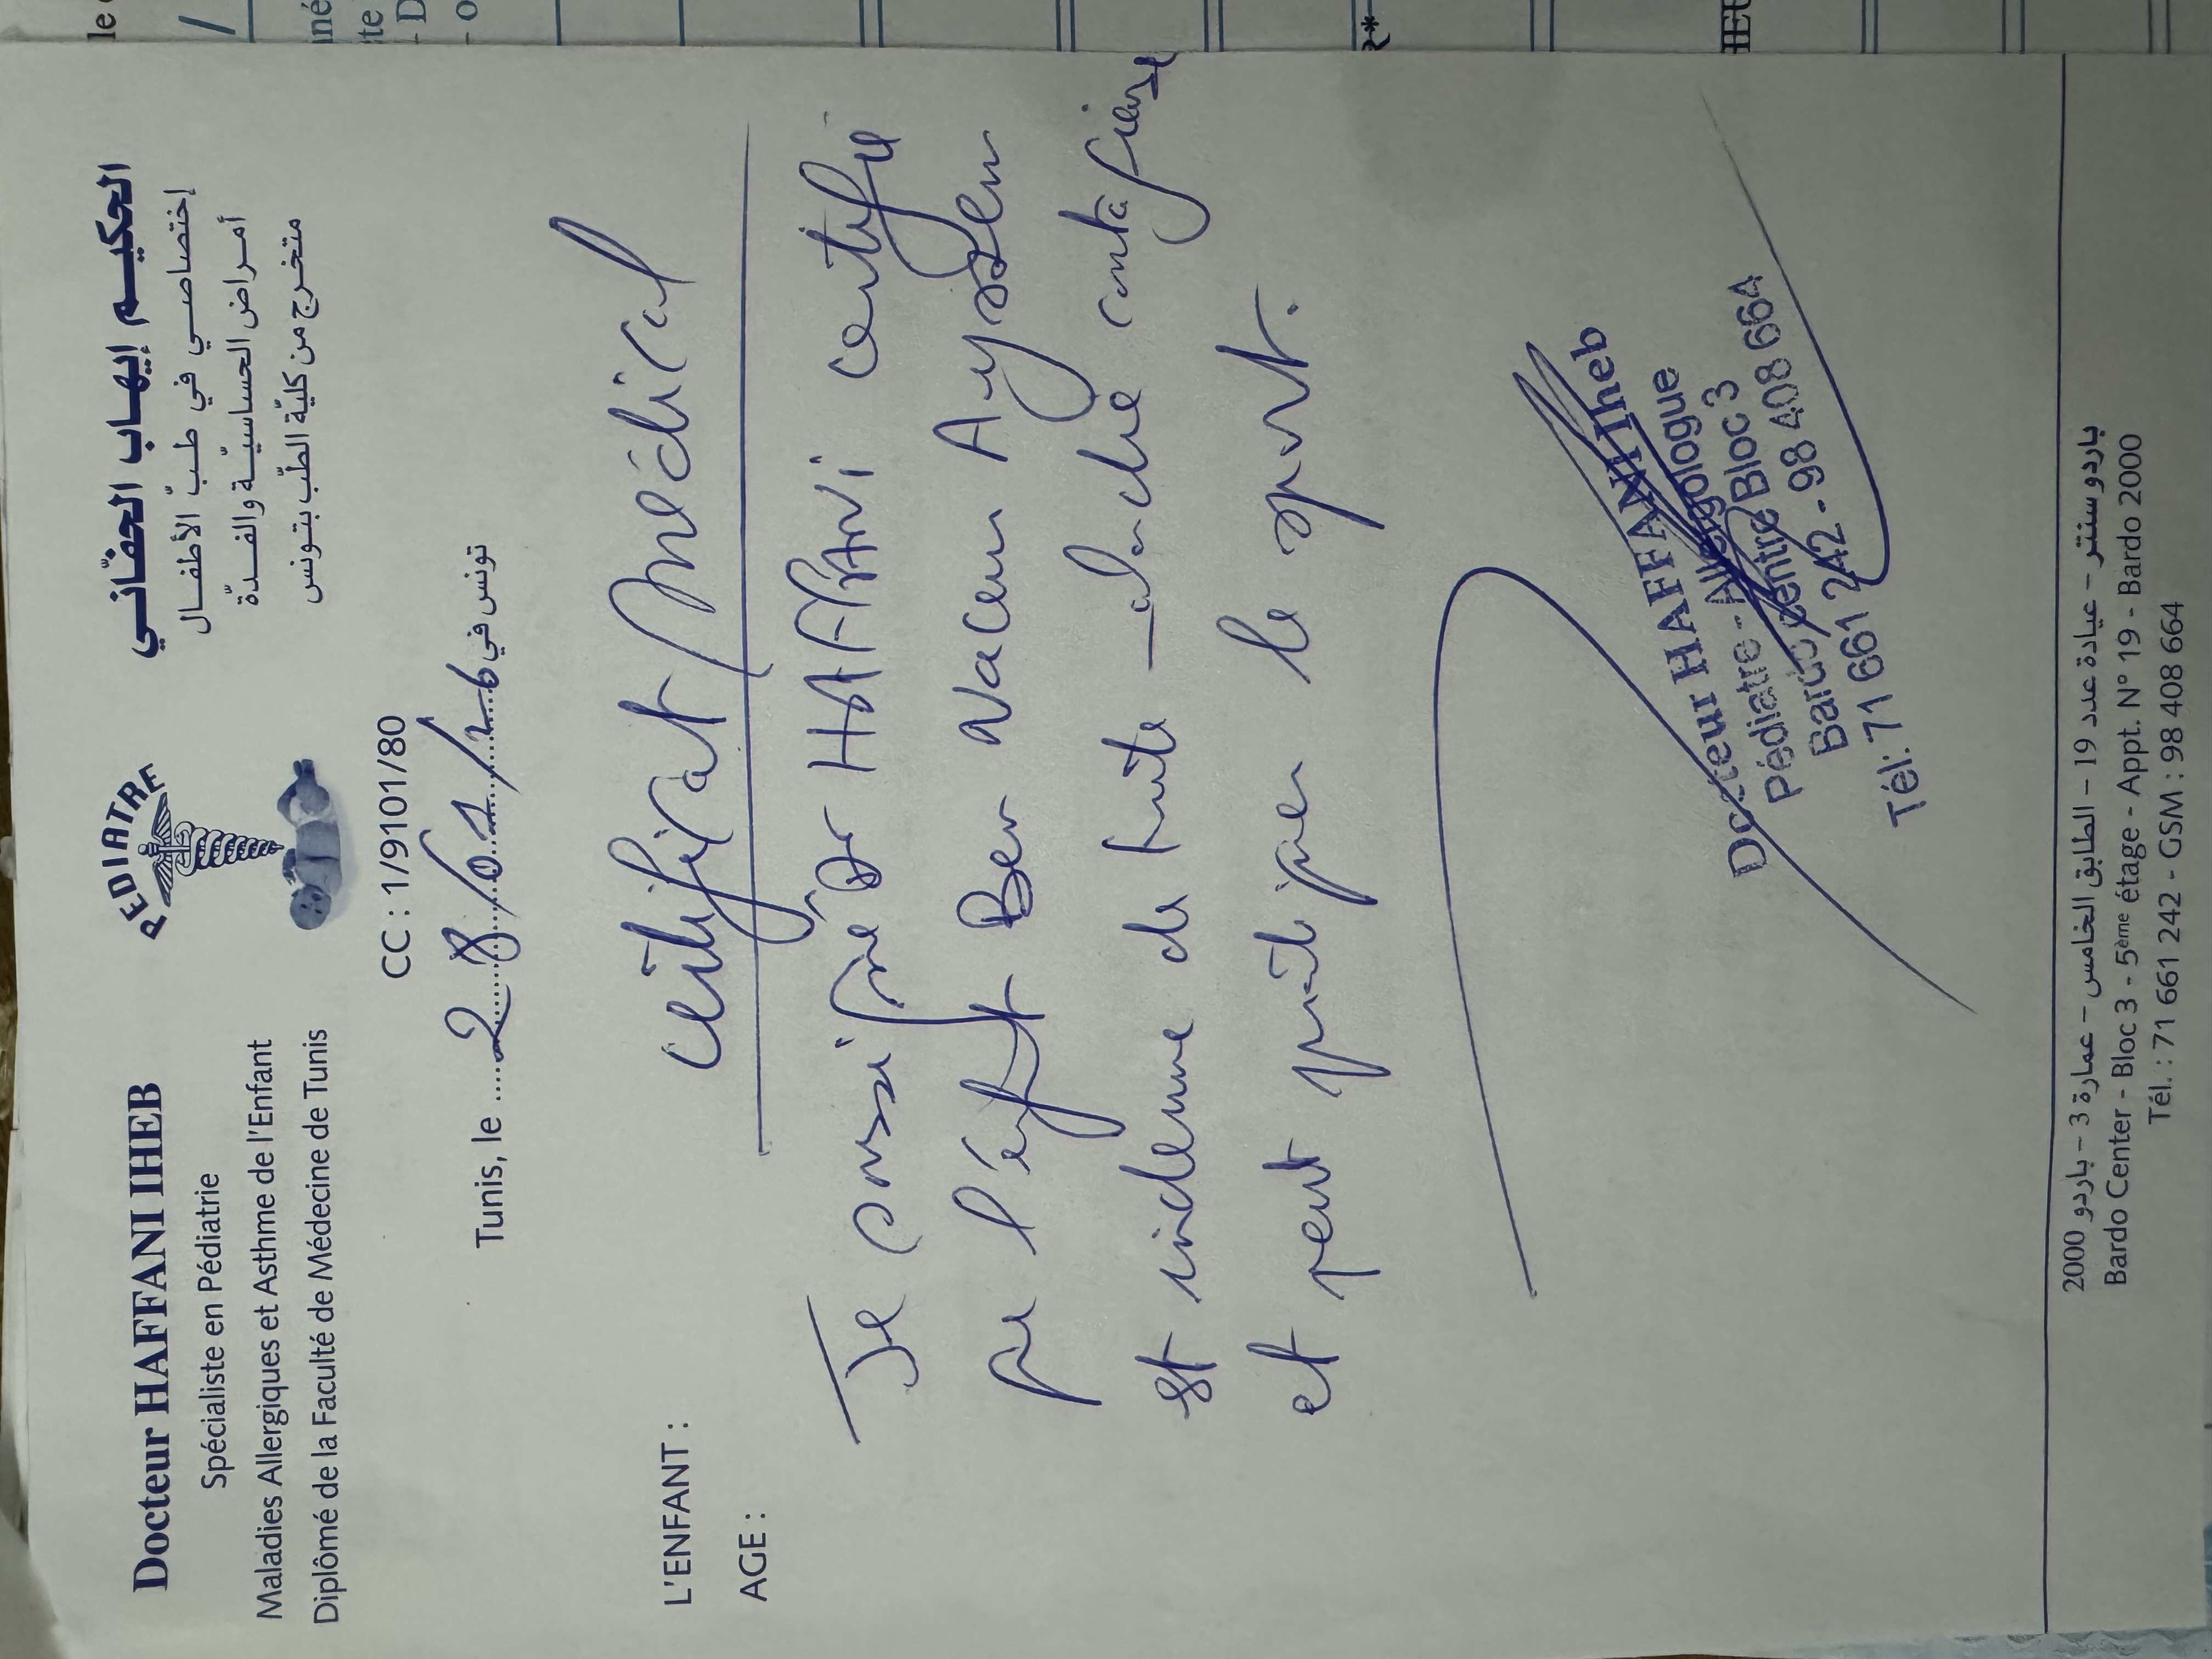 Docteur HAFFANI IHEB
Spécialiste en Pédiatrie
Maladies Allergiques et Asthme de l'Enfant
Diplômé de la Faculté de Médecine de Tunis
PEDIATRE
الحكيم إيهاب الحفاني
إختصاصي في طب الأطفال
أمراض الحساسية والفدة
متخرج من كلية الطب بتونس
CC : 1/9101/80
Tunis, le 28/01/26 تونس في
Certificat Médical
L'ENFANT :
AGE :
Je soussigné Dr HAFFANI certifie
que l'enft Ben Naceur Ayslen
est indemne de toute maladie contagieuse
et peut pratiquer le sport.
Docteur HAFFANI Iheb
Pédiatre - Allergologue
Bardo Centre Bloc 3
Tél: 71 661 242 - 98 408 664
باردو سنتر – عيادة عدد 19 – الطابق الخامس – عمارة 3 – باردو 2000
Bardo Center - Bloc 3 - 5ème étage - Appt. N° 19 - Bardo 2000
Tél. : 71 661 242 - GSM : 98 408 664